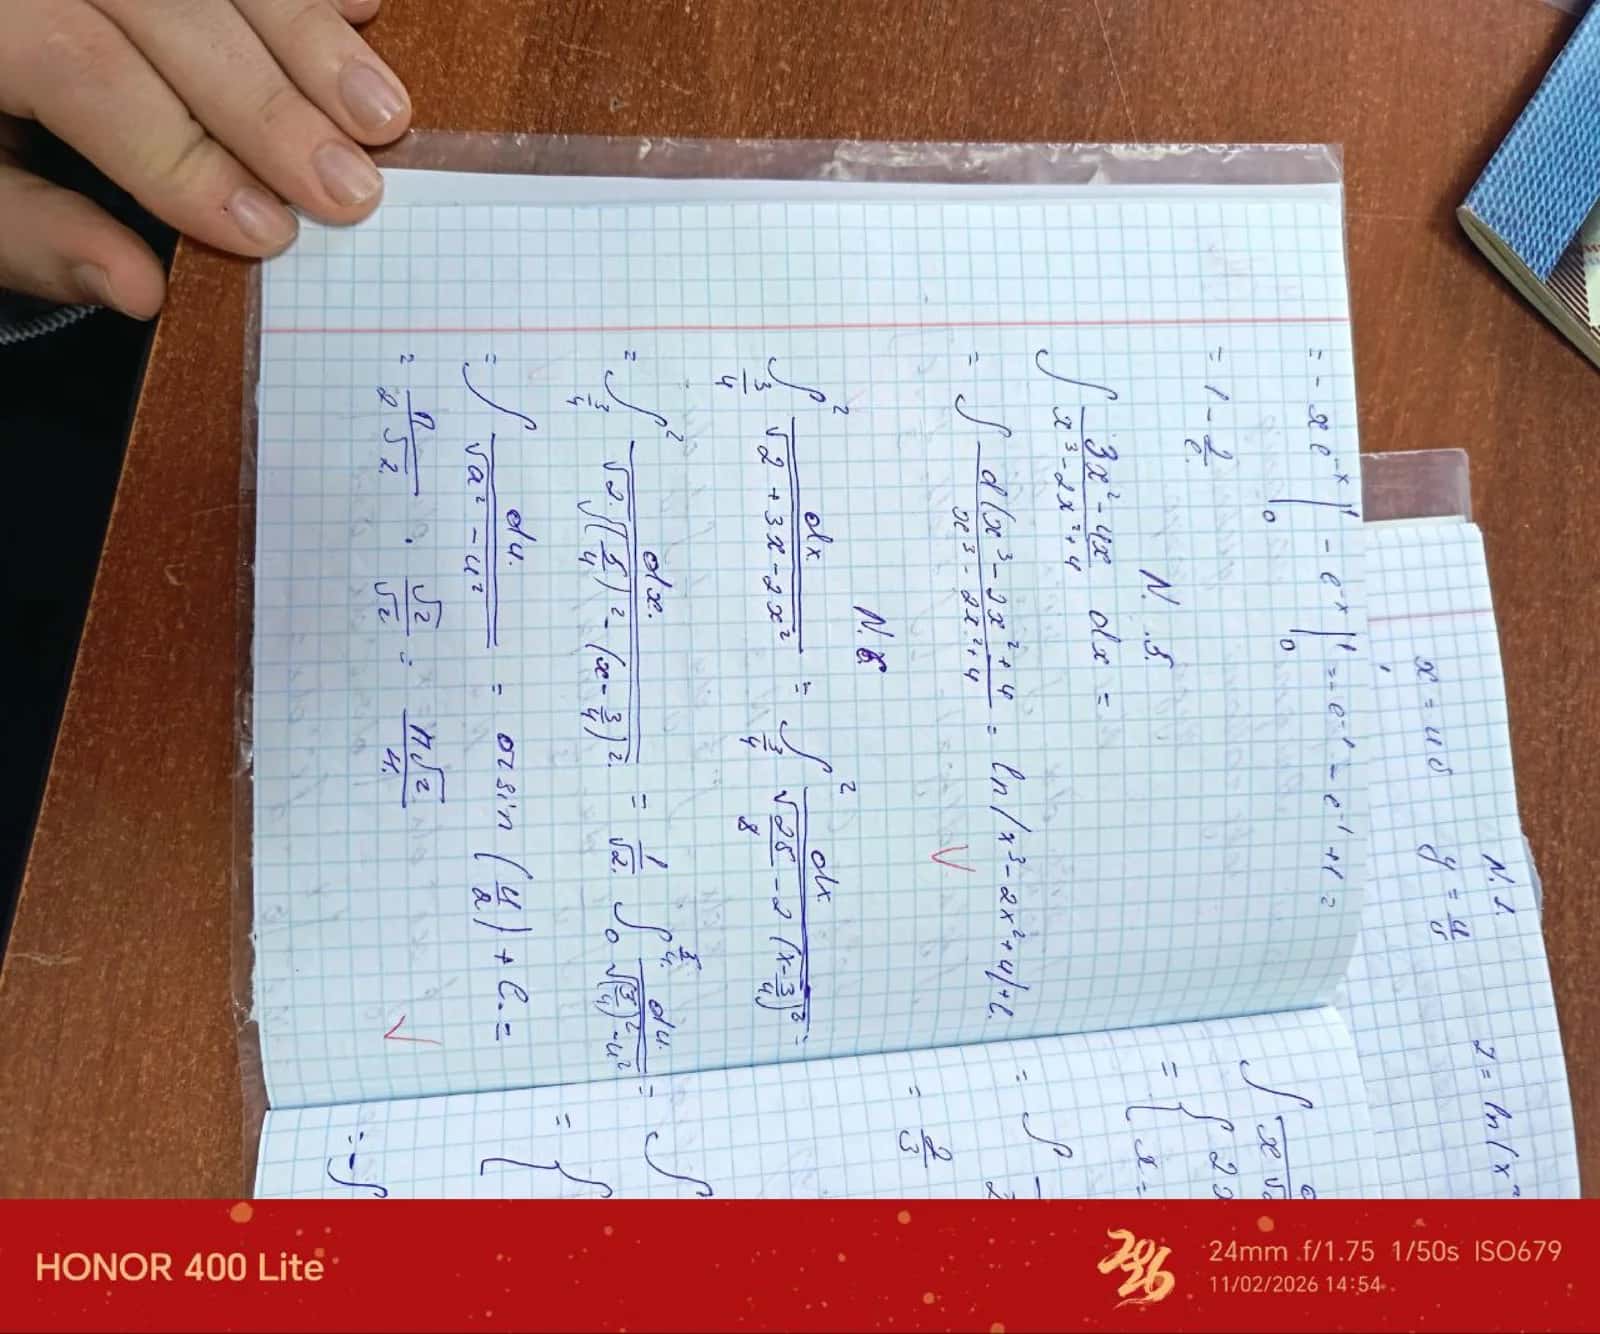 = - x e^{-x} |_0^1 - e^{-x} |_0^1 = - e^{-1} - e^{-1} + 1 =
= 1 - 2/e.
N. 5.
∫ (3x² - 4x)/(x³ - 2x² + 4) dx =
= ∫ d(x³ - 2x² + 4)/(x³ - 2x² + 4) = ln|x³ - 2x² + 4| + C.
N. 6.
∫_{3/4}^{2} dx/√(2 + 3x - 2x²) = ∫_{3/4}^{2} dx/√(25/8 - 2(x - 3/4)²) =
= ∫_{3/4}^{2} dx./√(2·((5/4)² - (x - 3/4)²)) = 1/√2. ∫_0^{5/4.} du./√((5/4)² - u²) =
= ∫ du./√(a² - u²) = arcsin (u/a) + C. =
= π/(2√2) · √2/√2 = π√2/4.
N. 1.
x = u v y = u/v z = ln(x²
∫
= { x =
= ∫
= 2/3
∫
= {
= - ∫
HONOR 400 Lite
2026
24mm f/1.75 1/50s ISO679
11/02/2026 14:54